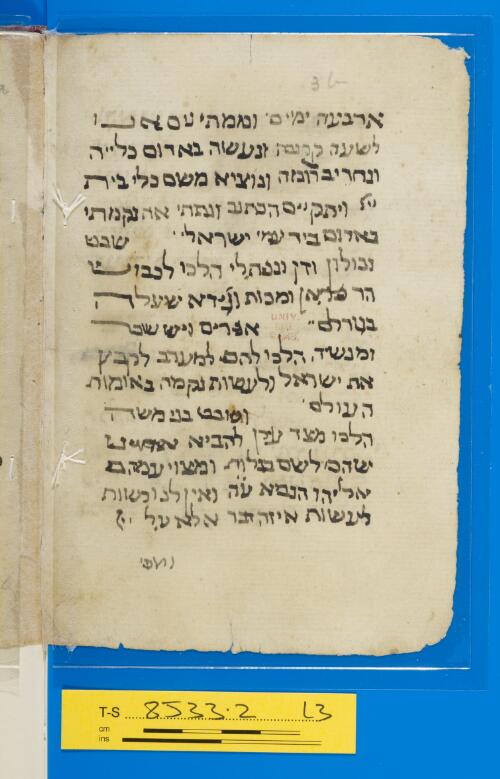 ארבעה ימים וממתי עם
לשעה קרובה ונעשה באדום כלייה
ונחריב רומה ונוציא משם כלי בית
ויתקיים הכתוב ונתתי את נקמתי
באדום ביד עמי ישראל שבט
זבולון ודן ונפתלי הלכו לכבוש
הר ומכות שיעלה
בגורלם אפרים ויששכר
ומנשה הלכו להם למערב לקבץ
את ישראל ולעשות נקמה באומות
העולם ושבט בני משה
הלכו מצד עדן להביא
שהם לשם ומצוי עמהם
אליהו הנביא ע׳ה ואין לנו רשות
לעשות איזה דבר אלא על
T-S 8533.2 L3
cm
ins